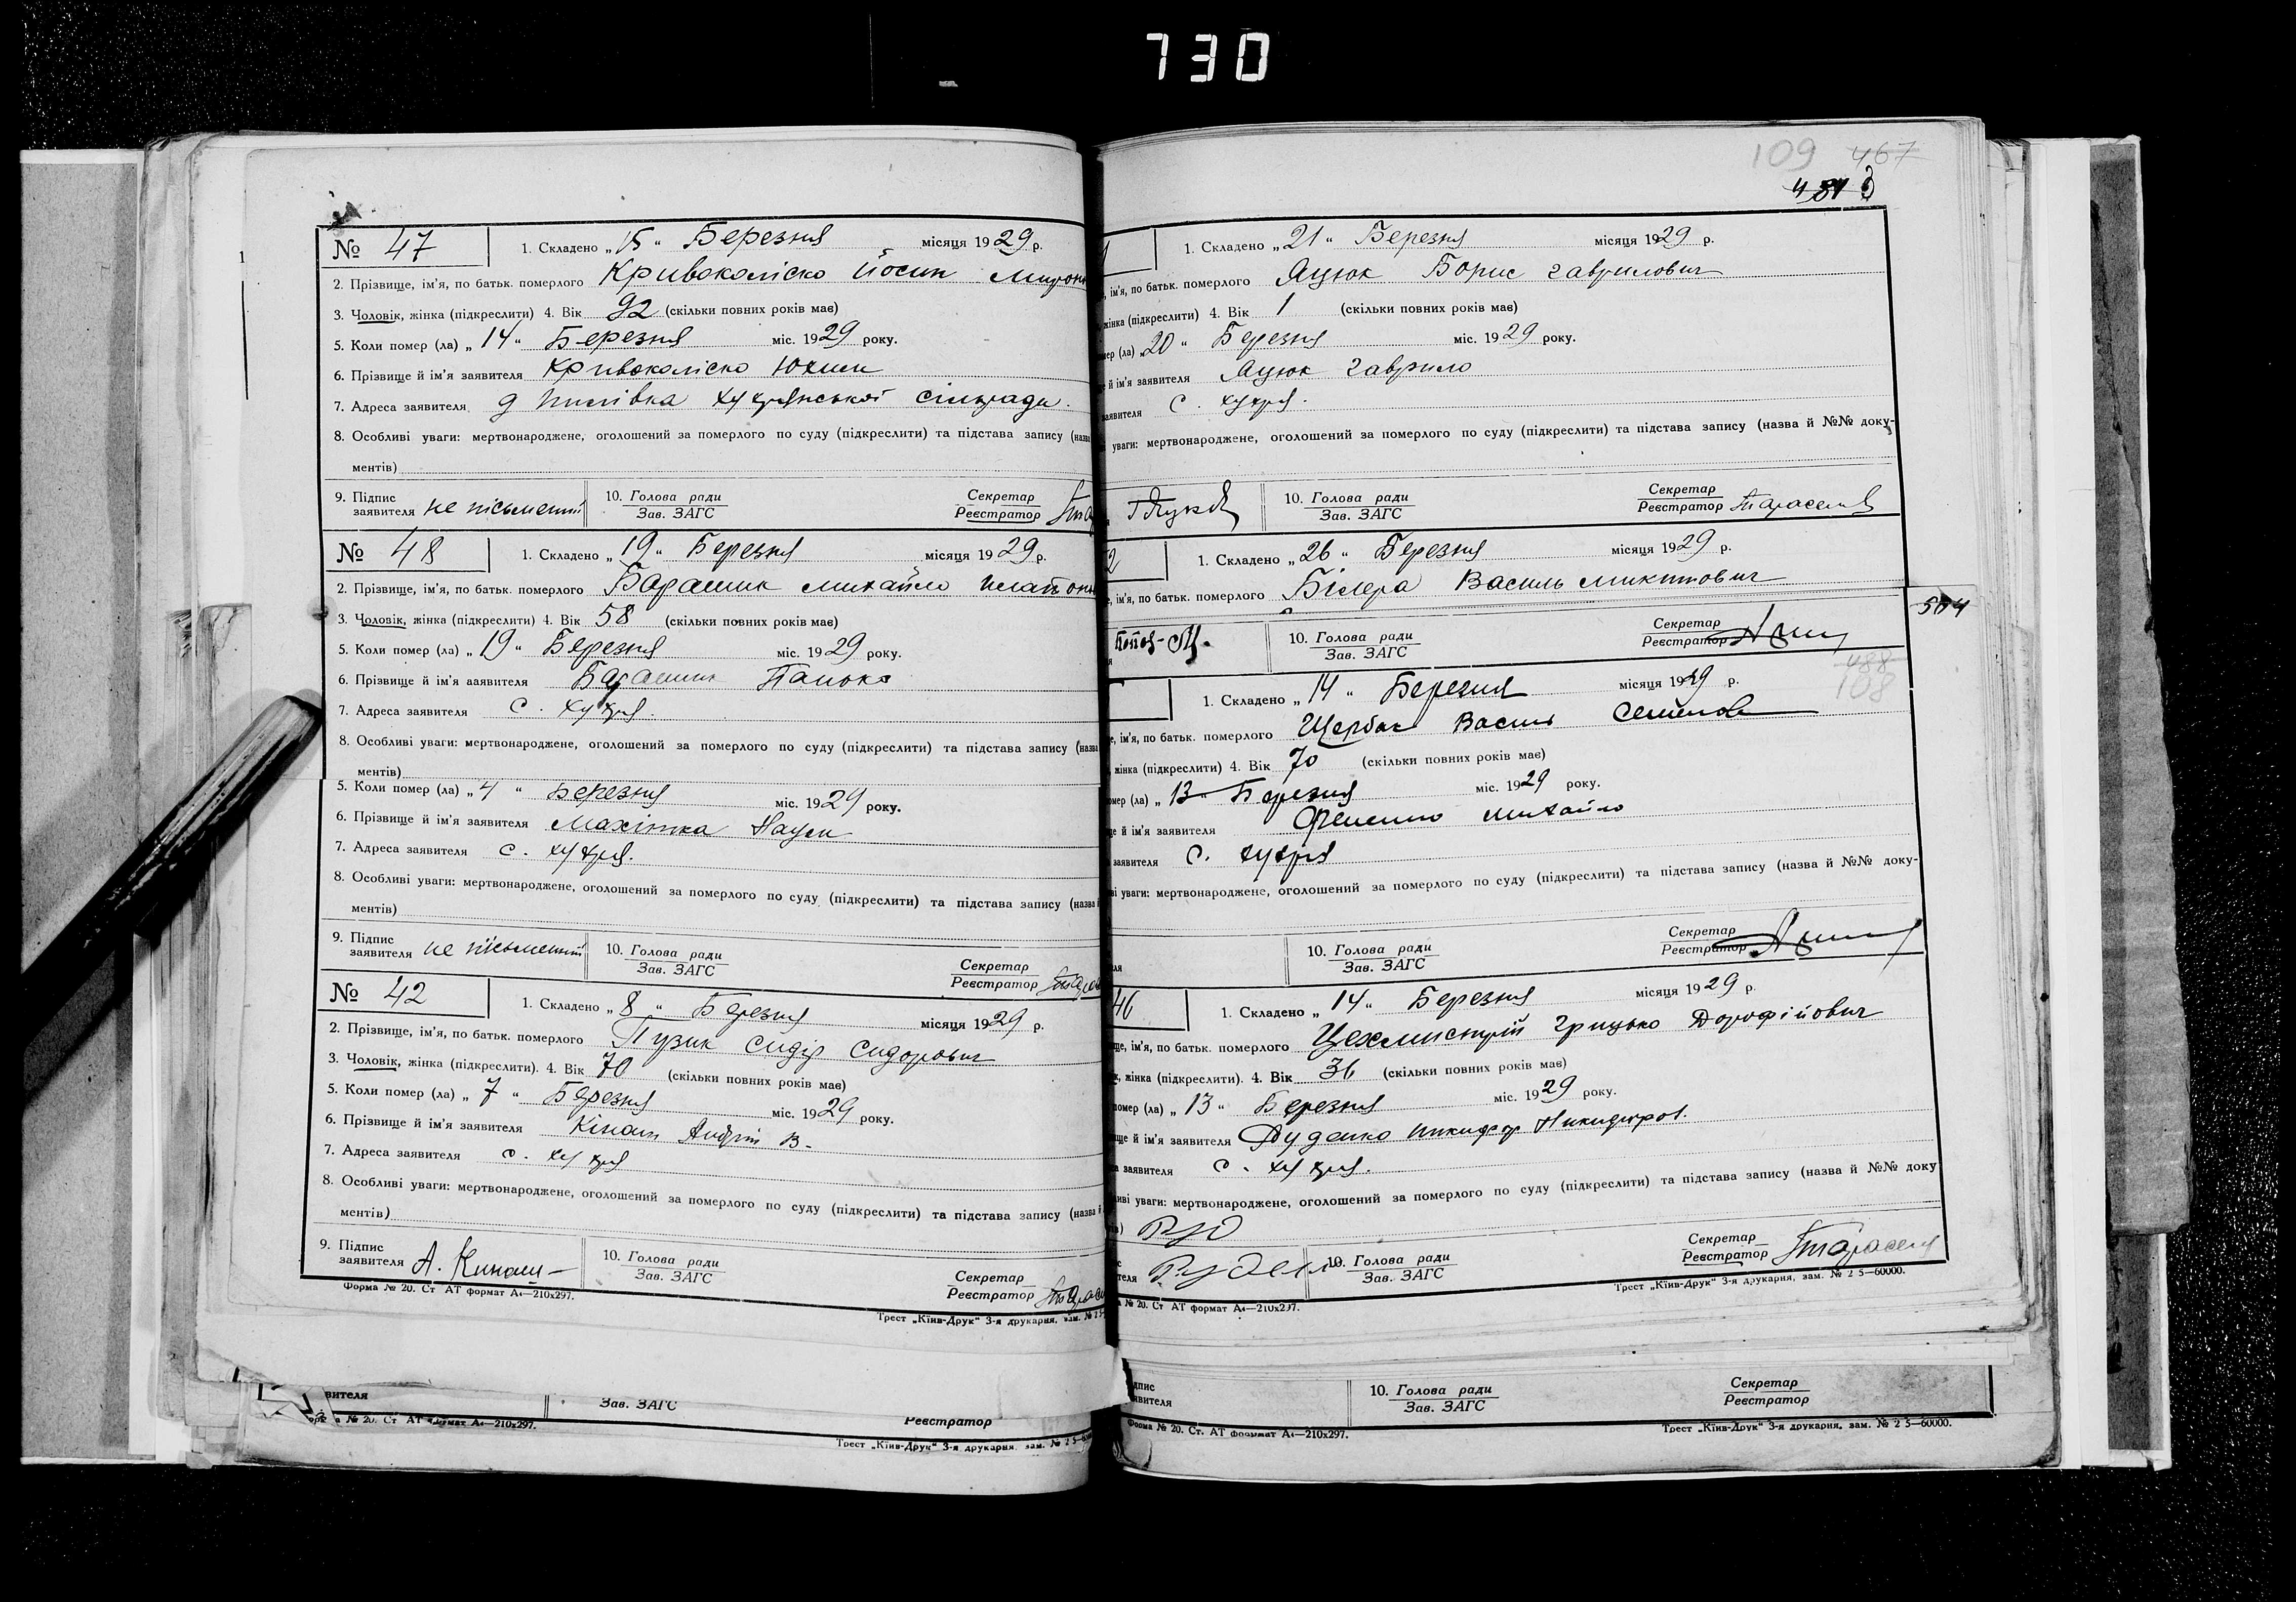 730
№ 47
1. Складено „ 15 “ Березня місяця 1929 р.
2. Прізвище, ім'я, по батьк. померлого Кривоколіско Йосип Мирон
3. Чоловік, жінка (підкреслити) 4. Вік 92 (скільки повних років має)
5. Коли помер (ла) „ 14 “ Березня міс. 1929 року.
6. Прізвище й ім'я заявителя Кривоколіско Юхим
7. Адреса заявителя Хутрянської сільради.
8. Особливі уваги: мертвонароджене, оголошений за померлого по суду (підкреслити) та підстава запису (назва
ментів)
9. Підпис заявителя не пісьменний
10. Голова ради
Зав. ЗАГС
Секретар
Реєстратор
№ 48
1. Складено „ 19 “ Березня місяця 1929 р.
2. Прізвище, ім'я, по батьк. померлого Барашик Михайло Платон
3. Чоловік, жінка (підкреслити) 4. Вік 58 (скільки повних років має)
5. Коли помер (ла) „ 19 “ Березня міс. 1929 року.
6. Прізвище й ім'я заявителя Барашик Панько
7. Адреса заявителя с. Хутря.
8. Особливі уваги: мертвонароджене, оголошений за померлого по суду (підкреслити) та підстава запису (назва
ментів)
5. Коли помер (ла) „ 4 “ Березня міс. 1929 року.
6. Прізвище й ім'я заявителя Махітка Наум
7. Адреса заявителя с. Хутря.
8. Особливі уваги: мертвонароджене, оголошений за померлого по суду (підкреслити) та підстава запису (назва й
ментів)
9. Підпис заявителя не пісьменний
10. Голова ради
Зав. ЗАГС
Секретар
Реєстратор
№ 42
1. Складено „ 8 “ Березня місяця 1929 р.
2. Прізвище, ім'я, по батьк. померлого Пузик Сидір Сидорович
3. Чоловік, жінка (підкреслити). 4. Вік 70 (скільки повних років має)
5. Коли помер (ла) „ 7 “ Березня міс. 1929 року.
6. Прізвище й ім'я заявителя Кінаш Андрій В.
7. Адреса заявителя с. Хутря
8. Особливі уваги: мертвонароджене, оголошений за померлого по суду (підкреслити) та підстава запису (назва й
ментів)
9. Підпис заявителя А. Кинаш
10. Голова ради
Зав. ЗАГС
Секретар
Реєстратор
Форма № 20. Ст АТ формат А4—210х297.
Трест „Київ-Друк“ 3-я друкарня, зам. № 2 5
вителя
Зав. ЗАГС
Реєстратор
орма № 20. Ст АТ формат А4—210х297.
Трест „Київ-Друк“ 3-я друкарня, зам. № 2 5
109 467
481
1. Складено „ 21 “ Березня місяця 1929 р.
ім'я, по батьк. померлого Яцюк Борис Гаврилович
жінка (підкреслити) 4. Вік 1 (скільки повних років має)
мер (ла) „ 20 “ Березня міс. 1929 року.
е й ім'я заявителя Яцюк Гаврило
заявителя с. Хутря.
уваги: мертвонароджене, оголошений за померлого по суду (підкреслити) та підстава запису (назва й №№ доку-
10. Голова ради
Зав. ЗАГС
Секретар
Реєстратор
2
1. Складено „ 26 “ Березня місяця 1929 р.
е, ім'я, по батьк. померлого Білера Василь Микитович
504
10. Голова ради
Зав. ЗАГС
Секретар
Реєстратор
488
108
1. Складено „ 14 “ Березня місяця 1929 р.
е, ім'я, по батьк. померлого Щербак Василь Семенов
жінка (підкреслити) 4. Вік 70 (скільки повних років має)
омер (ла) „ 13 “ Березня міс. 1929 року.
ще й ім'я заявителя Михайло
заявителя с. Хутря
ві уваги: мертвонароджене, оголошений за померлого по суду (підкреслити) та підстава запису (назва й №№ доку-
10. Голова ради
Зав. ЗАГС
Секретар
Реєстратор
46
1. Складено „ 14 “ Березня місяця 1929 р.
ще, ім'я, по батьк. померлого Цехмистрій Грицько Дорофійович
к, жінка (підкреслити). 4. Вік 36 (скільки повних років має)
помер (ла) „ 13 “ Березня міс. 1929 року.
ище й ім'я заявителя Руденко Никифор Никифоров.
а заявителя с. Хутря.
иві уваги: мертвонароджене, оголошений за померлого по суду (підкреслити) та підстава запису (назва й №№ доку
10. Голова ради
Зав. ЗАГС
Секретар
Реєстратор
а № 20. Ст АТ формат А4—210х297.
Трест „Київ-Друк“ 3-я друкарня, зам. № 2 5—60000.
дпис
явителя
10. Голова ради
Зав. ЗАГС
Секретар
Реєстратор
Форма № 20. Ст. АТ формат А4—210х297.
Трест „Київ-Друк“ 3-я друкарня, зам. № 2 5—60000.